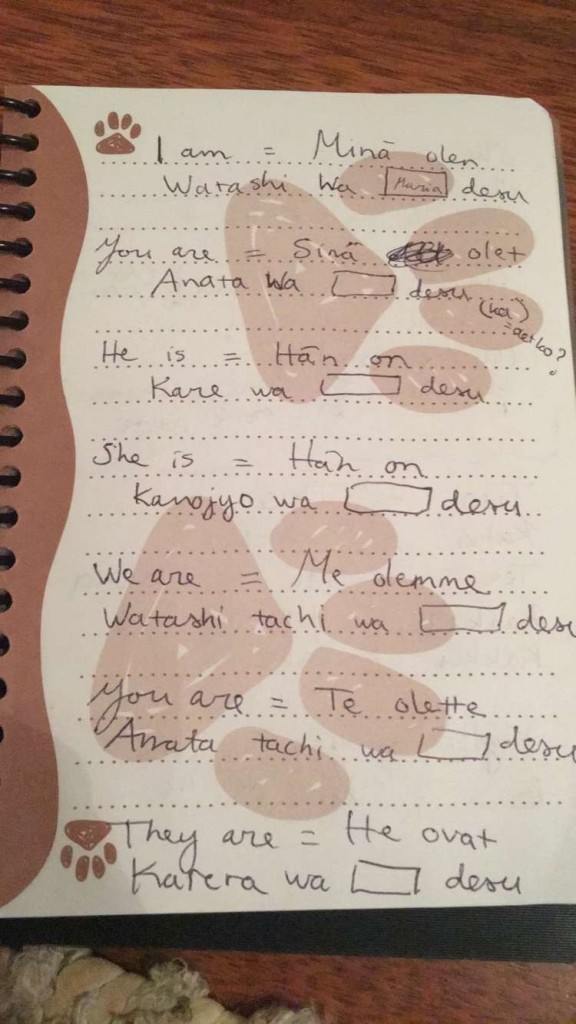 I am = Minä olen
Watashi wa Maria desu
You are = Sinä olet
Anata wa desu (ka)
= oletko?
He is = Hän on
Kare wa desu
She is = Hän on
Kanojyo wa desu
We are = Me olemme
Watashi tachi wa desu
You are = Te olette
Anata tachi wa desu
They are = He ovat
Karera wa desu